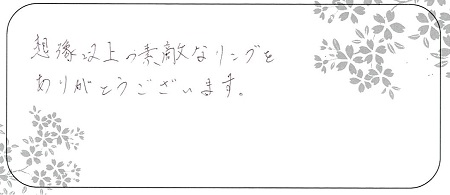 想像以上の素敵なリングを
ありがとうございます。